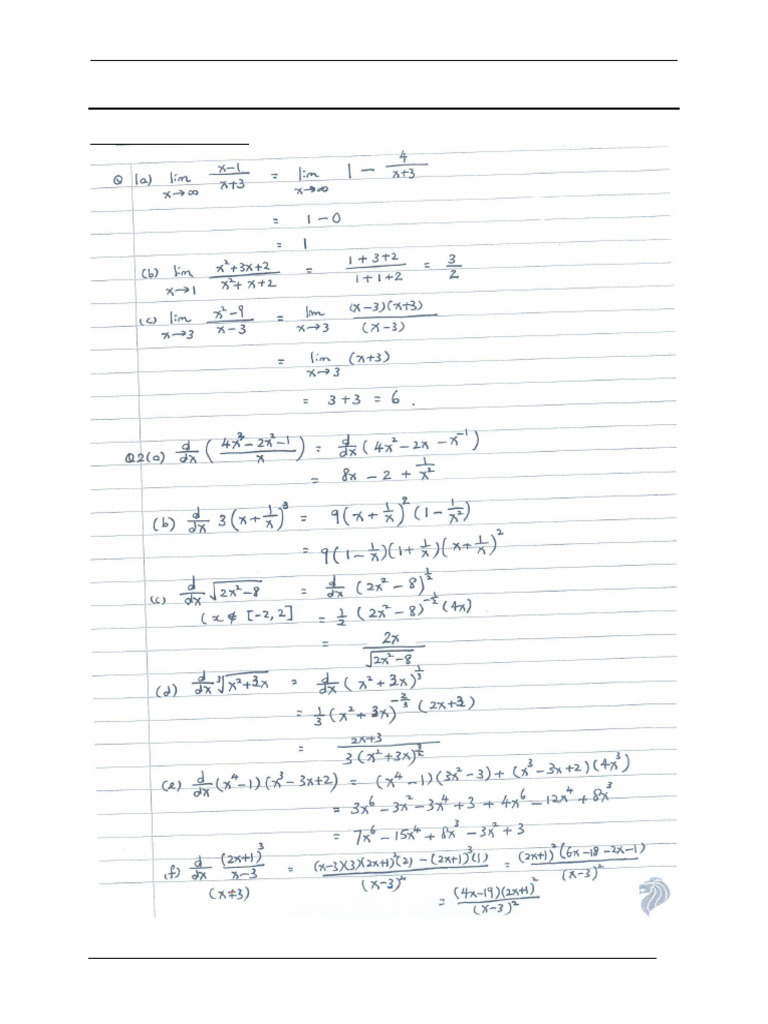 Q 1a) lim x→∞ (x-1)/(x+3) = lim x→∞ 1 - 4/(x+3)
= 1-0
= 1
(b) lim x→1 (x²+3x+2)/(x²+x+2) = (1+3+2)/(1+1+2) = 3/2
(c) lim x→3 (x²-9)/(x-3) = lim x→3 (x-3)(x+3)/(x-3)
= lim x→3 (x+3)
= 3+3 = 6.
Q2(a) d/dx ((4x³-2x²-1)/x) = d/dx (4x²-2x-x⁻¹)
= 8x-2+1/x²
(b) d/dx 3(x+1/x)³ = 9(x+1/x)²(1-1/x²)
= 9(1-1/x)(1+1/x)(x+1/x)²
(c) d/dx √(2x²-8) = d/dx (2x²-8)^(1/2)
(x ∉ [-2,2] = 1/2 (2x²-8)^(-1/2) (4x)
= 2x/√(2x²-8)
(d) d/dx ∛(x²+3x) = d/dx (x²+3x)^(1/3)
= 1/3 (x²+3x)^(-2/3) (2x+3)
= (2x+3)/(3(x²+3x)^(2/3))
(e) d/dx (x⁴-1)(x³-3x+2) = (x⁴-1)(3x²-3)+(x³-3x+2)(4x³)
= 3x⁶-3x²-3x⁴+3+4x⁶-12x⁴+8x³
= 7x⁶-15x⁴+8x³-3x²+3
(f) d/dx (2x+1)³/(x-3) = ((x-3)(3)(2x+1)²(2)-(2x+1)³(1))/(x-3)² = (2x+1)²(6x-18-2x-1)/(x-3)²
(x≠3) = (4x-19)(2x+1)²/(x-3)²